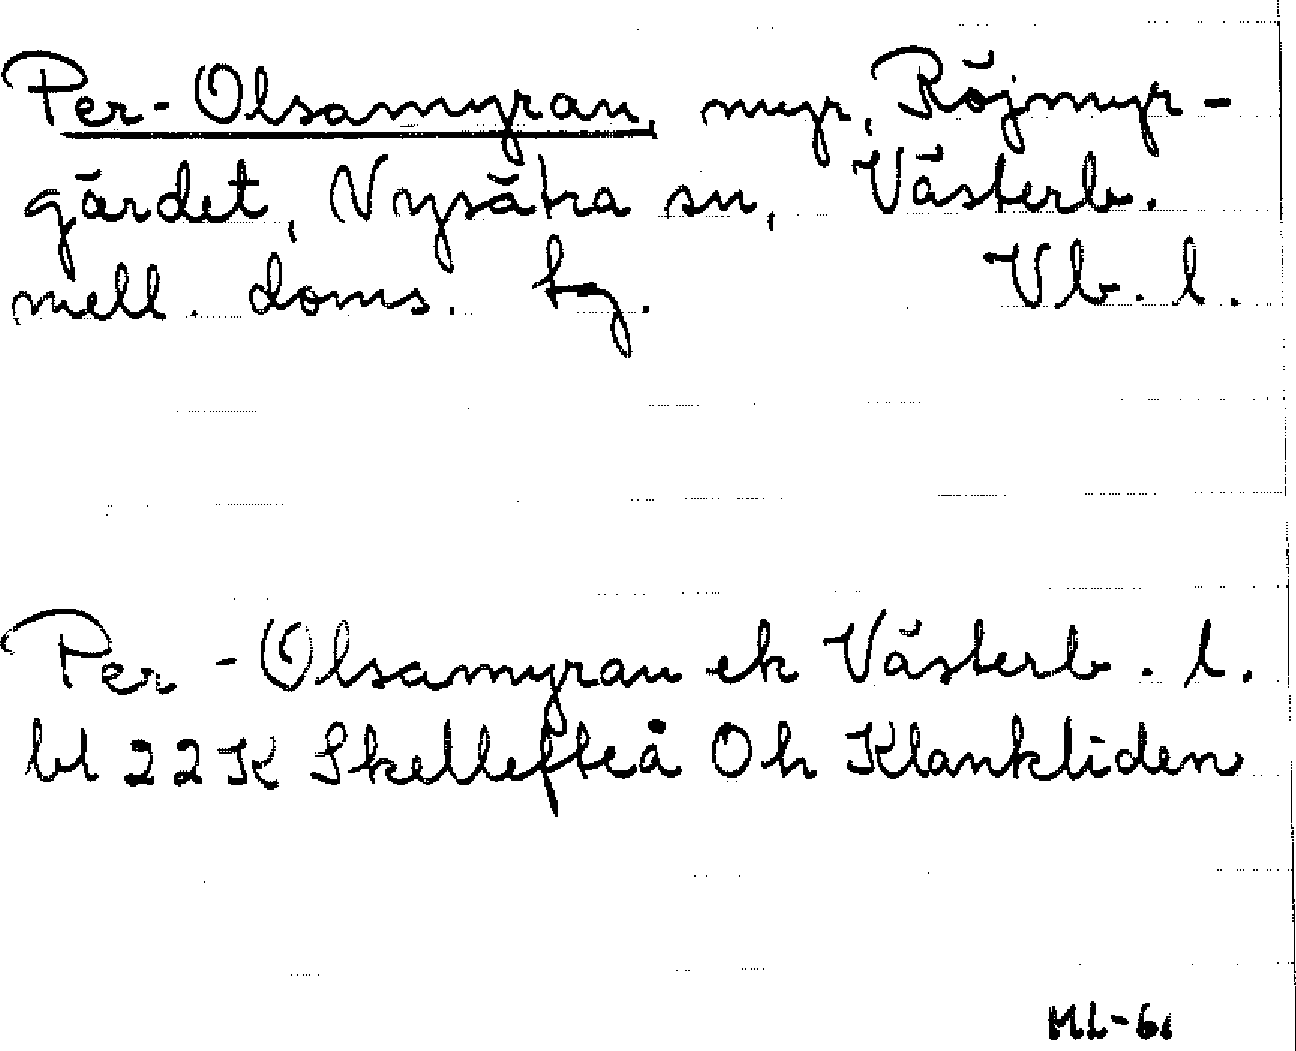 Per-Olsamyran, myr, Röjmyr-
gärdet, Nysätra sn, Västerb.
mell. doms. tg. Vb. l.
Per-Olsamyran ek Västerb. l.
bl 22K Skellefteå Oh Klankliden